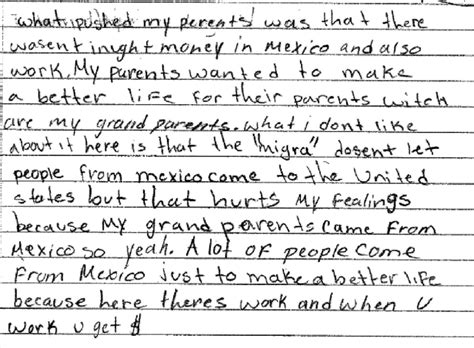 what pushed my perents was that there
wasent inught money in mexico and also
work. My parents wanted to make
a better life for their parents witch
are my grand parents. what i dont like
about it here is that the "migra" dosent let
people from mexico come to the United
states but that hurts my fealings
because my grand parents came from
Mexico so yeah. A lot of people come
from Mexico just to make a better life
because here theres work and when u
work u get $